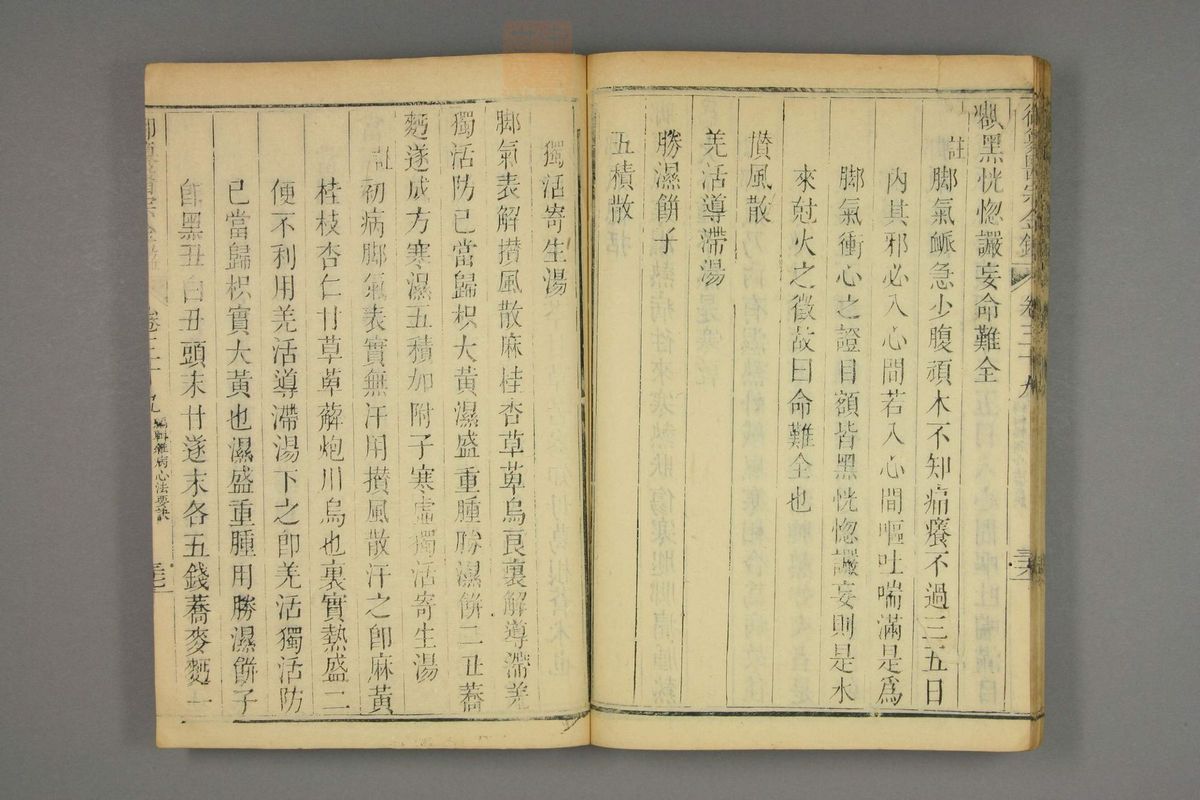 御纂醫宗金鑑 卷三十九
獻黑恍惚譫妄命難全
註 脚氣脈急少腹頑木不知痛癢不過三五日
內其邪必入心間若入心間嘔吐喘滿是爲
脚氣衝心之證目額皆黑恍惚譫妄則是水
來尅火之徵故曰命難全也
攢風散
羌活導滯湯
勝濕餅子
五積散
獨活寄生湯
脚氣表解攢風散麻桂杏草萆烏良裏解導滯羌
獨活防已當歸枳大黃濕盛重腫勝濕餅二丑蕎
麪遂成方寒濕五積加附子寒虛獨活寄生湯
註 初病脚氣表實無汗用攢風散汗之卽麻黃
桂枝杏仁甘草萆薢炮川烏也裏實熱盛二
便不利用羌活導滯湯下之卽羌活獨活防
已當歸枳實大黃也濕盛重腫用勝濕餅子
卽黑丑白丑頭末甘遂末各五錢蕎麥麪一
編輯雜病心法要訣